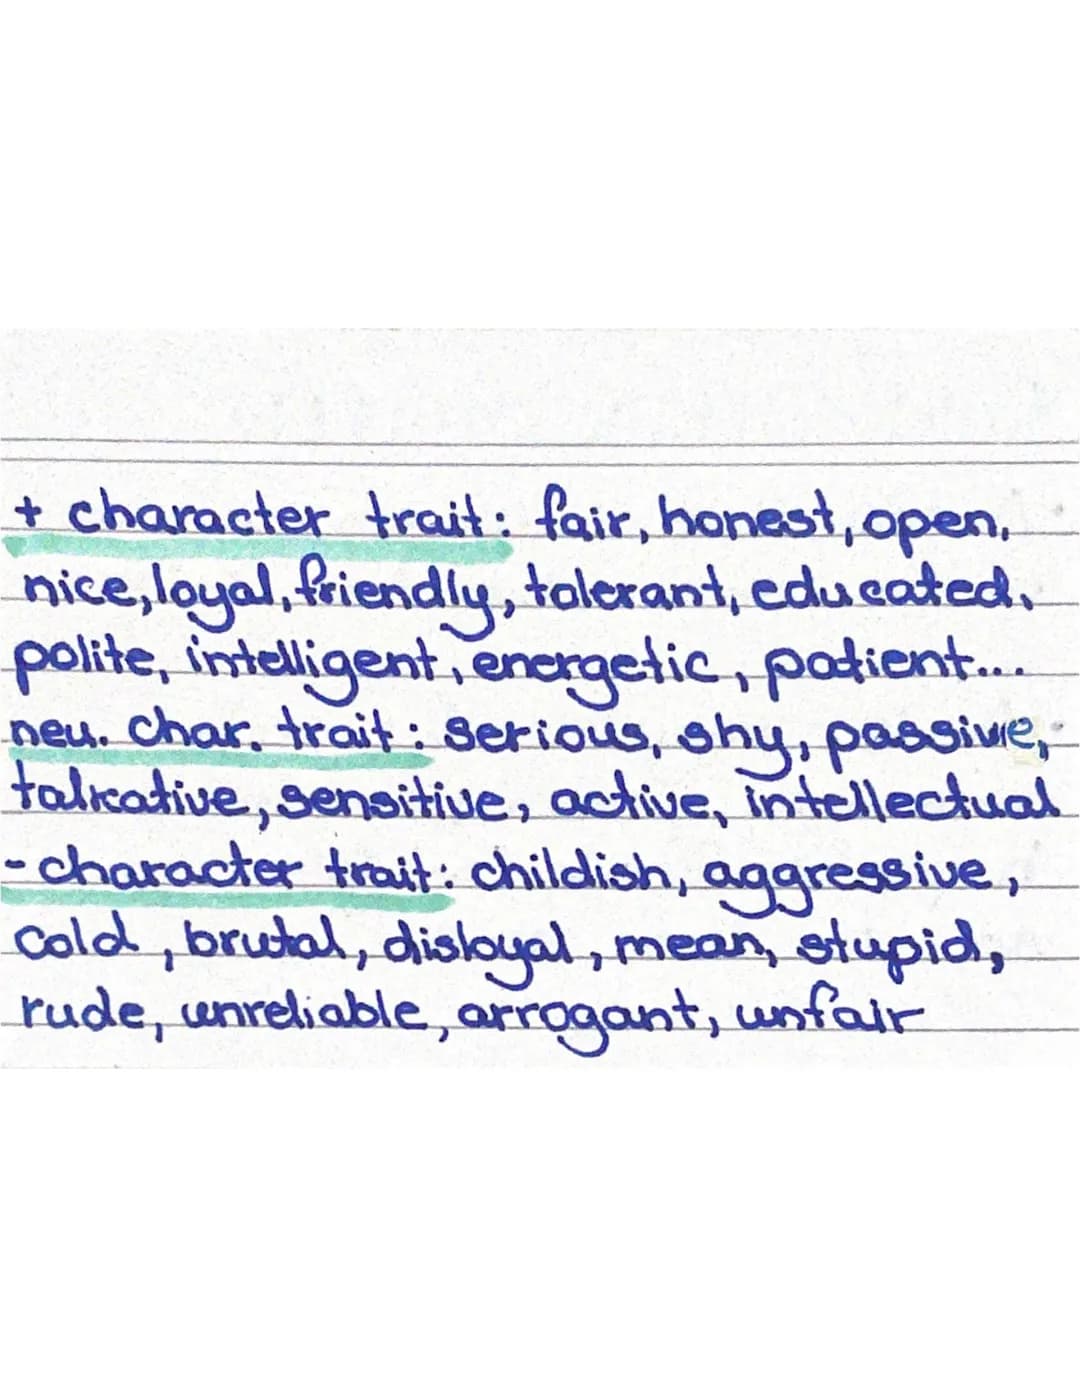 + character trait: fair, honest, open,
nice, loyal, friendly, tolerant, educated,
polite, intelligent, energetic, patient...
neu. char. trait: serious, shy, passive,
talkative, sensitive, active, intellectual
- character trait: childish, aggressive,
cold, brutal, disloyal, mean, stupid,
rude, unreliable, arrogant, unfair